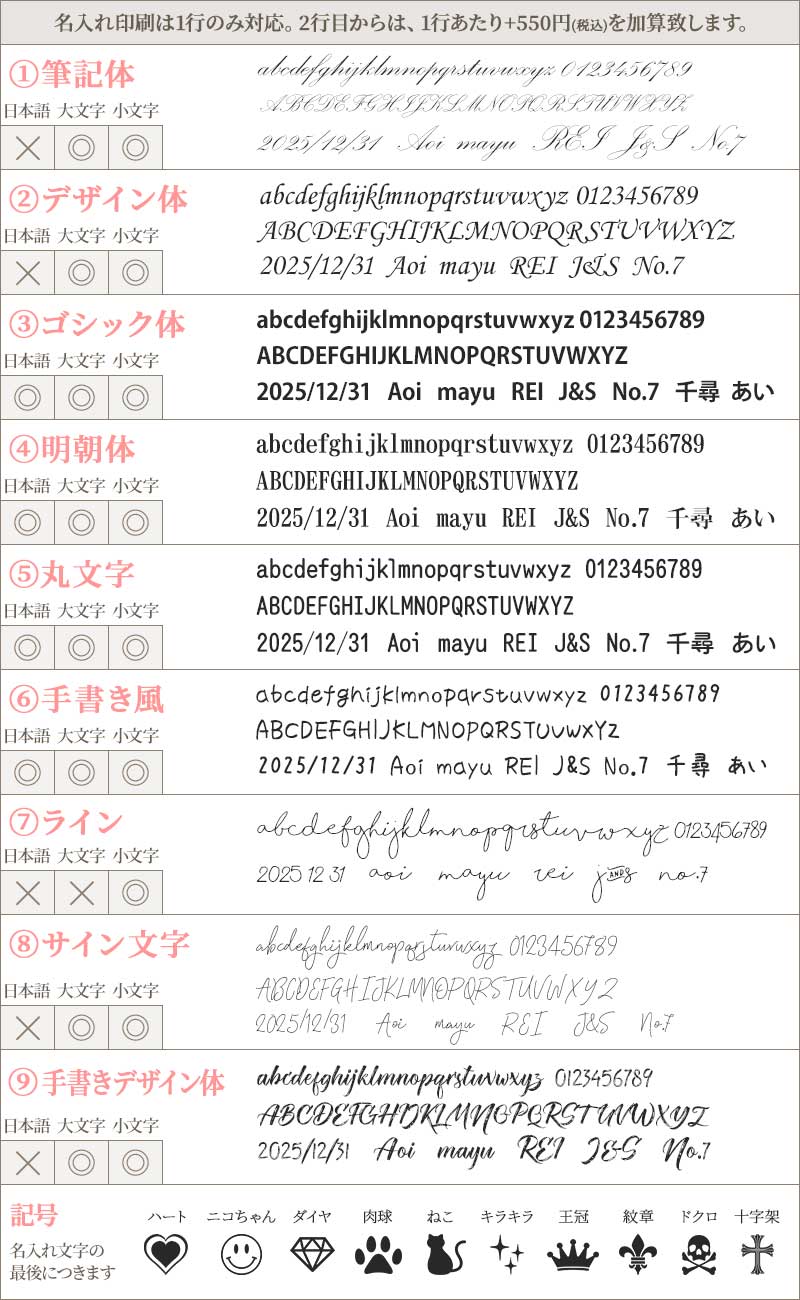 名入れ印刷は1行のみ対応。2行目からは、1行あたり+550円(税込)を加算致します。
①筆記体
日本語 大文字 小文字
× ◎ ◎
abcdefghijklmnopqrstuvwxyz 0123456789
ABCDEFGHIJKLMNOPQRSTUVWXYZ
2025/12/31 Aoi mayu REI J&S No.7
②デザイン体
日本語 大文字 小文字
× ◎ ◎
abcdefghijklmnopqrstuvwxyz 0123456789
ABCDEFGHIJKLMNOPQRSTUVWXYZ
2025/12/31 Aoi mayu REI J&S No.7
③ゴシック体
日本語 大文字 小文字
◎ ◎ ◎
abcdefghijklmnopqrstuvwxyz 0123456789
ABCDEFGHIJKLMNOPQRSTUVWXYZ
2025/12/31 Aoi mayu REI J&S No.7 千尋 あい
④明朝体
日本語 大文字 小文字
◎ ◎ ◎
abcdefghijklmnopqrstuvwxyz 0123456789
ABCDEFGHIJKLMNOPQRSTUVWXYZ
2025/12/31 Aoi mayu REI J&S No.7 千尋 あい
⑤丸文字
日本語 大文字 小文字
◎ ◎ ◎
abcdefghijklmnopqrstuvwxyz 0123456789
ABCDEFGHIJKLMNOPQRSTUVWXYZ
2025/12/31 Aoi mayu REI J&S No.7 千尋 あい
⑥手書き風
日本語 大文字 小文字
◎ ◎ ◎
abcdefghijklmnopqrstuvwxyz 0123456789
ABCDEFGHIJKLMNOPQRSTUVWXYZ
2025/12/31 Aoi mayu REI J&S No.7 千尋 あい
⑦ライン
日本語 大文字 小文字
× × ◎
abcdefghijklmnopqrstuvwxyz 0123456789
2025 12 31 aoi mayu rei jANDs no.7
⑧サイン文字
日本語 大文字 小文字
× ◎ ◎
abcdefghijklmnopqrstuvwxyz 0123456789
ABCDEFGHIJKLMNOPQRSTUVWXYZ
2025/12/31 Aoi mayu REI J&S No.7
⑨手書きデザイン体
日本語 大文字 小文字
× ◎ ◎
abcdefghijklmnopqrstuvwxyz 0123456789
ABCDEFGHIJKLMNOPQRSTUVWXYZ
2025/12/31 Aoi mayu REI J&S No.7
記号
名入れ文字の
最後につきます
ハート ニコちゃん ダイヤ 肉球 ねこ キラキラ 王冠 紋章 ドクロ 十字架